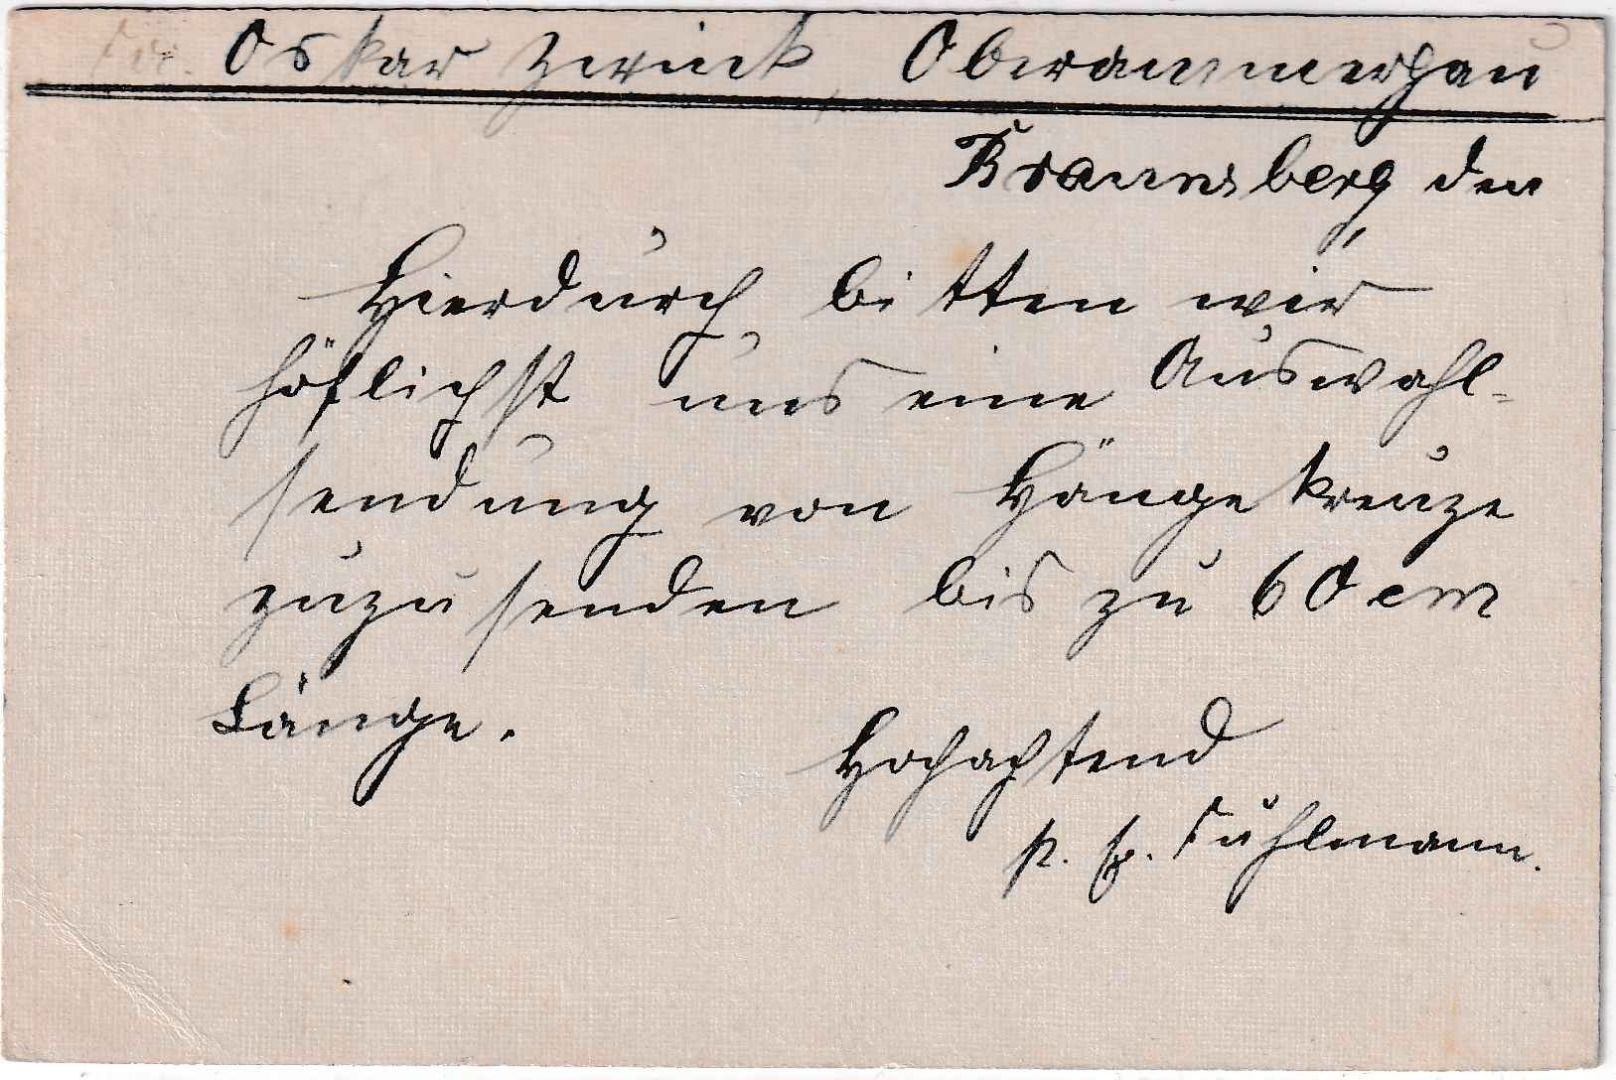 Fa. Oskar Zwink, Oberammergau
Kranzberg, den
Hierdurch bitten wir
höflichst uns eine Auswahl-
sendung von Hängekreuze
zuzusenden bis zu 60 cm
Länge.
Hochachtend
Fühlmann.